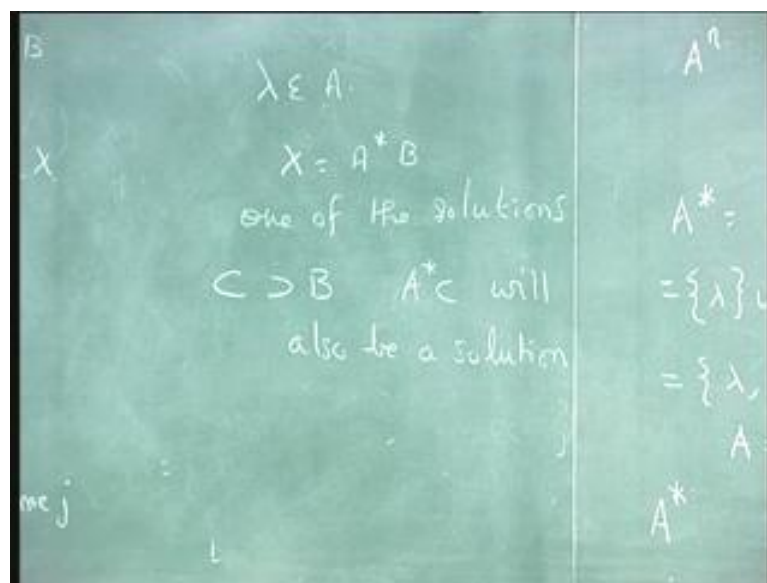 B
λ ε A.
X
X = A* B
one of the solutions
C ⊃ B   A*C will
also be a solution
j
L
Aⁿ
A* =
= {λ} ∪
= {λ,
A =
A*